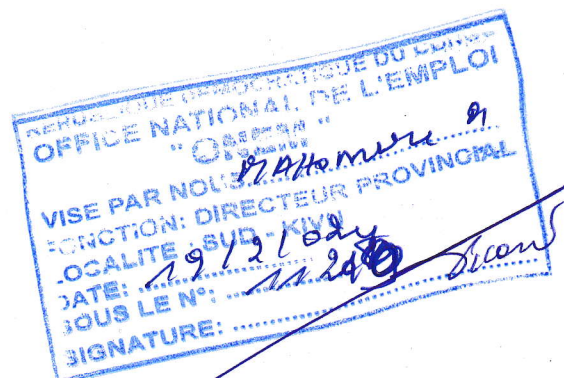 REPUBLIQUE DEMOCRATIQUE DU CONGO
OFFICE NATIONAL DE L'EMPLOI
"ONEM"
VISE PAR NOUS
FONCTION: DIRECTEUR PROVINCIAL
LOCALITE : SUD - KIVU
DATE: 19/2/
SOUS LE N°:
SIGNATURE: